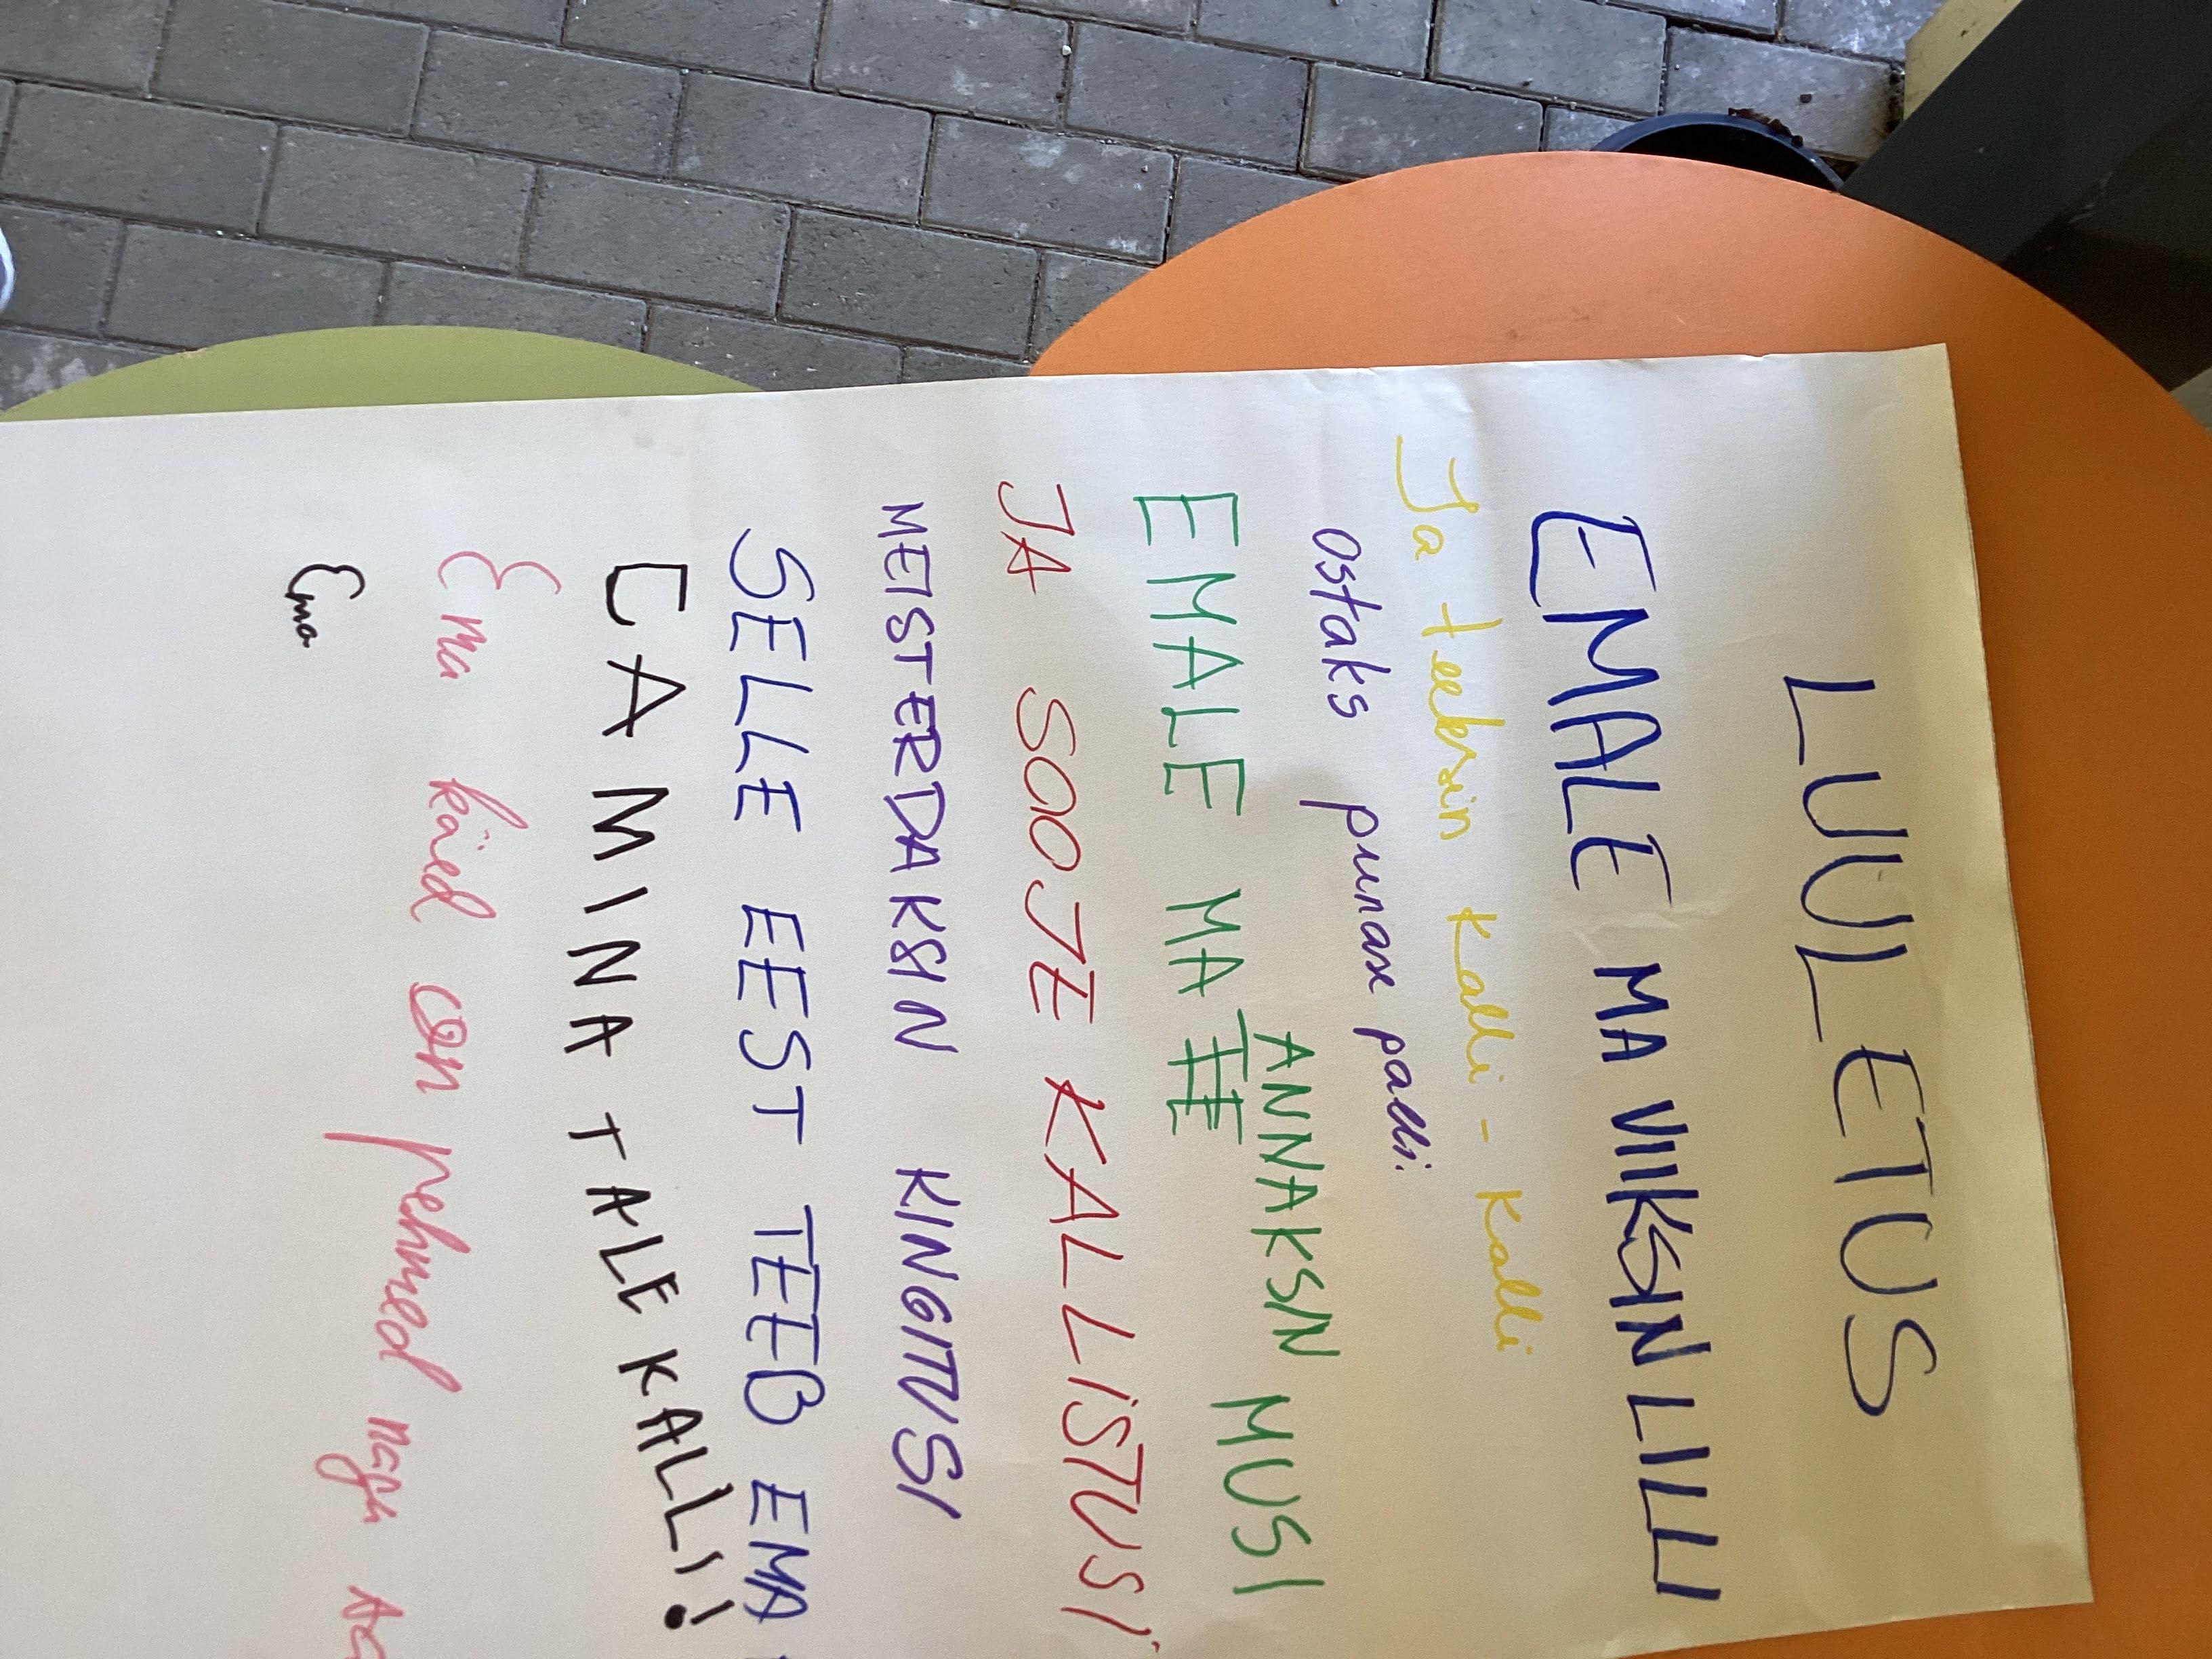 LUULETUS
EMALE MA VIIKSIN LILLI
Ja teeksin Kalli - Kalli
ostaks punase palli.
ANNAKSIN
EMALE MA MUSI
JA SOOJE KALLISTUSI
MEISTERDAKSIN KINGITUSI
SELLE EEST TEEB EMA
JA MINA TALE KALLI!
Ema käed on pehmed nagu
Ema